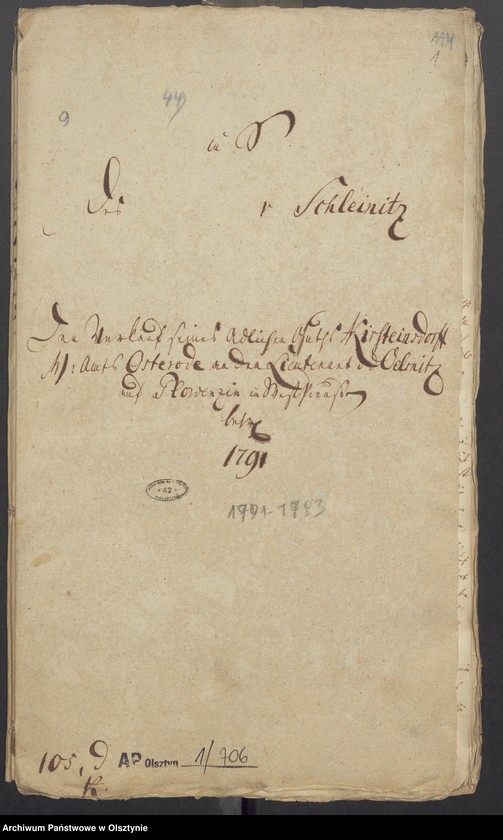 114
1
9
44)
in S
Des v Schleinitz
Den Verkauf seines Adlichen Guths Kirsteinsdorff
Amts Osterode an den Lieutenant v Oelsnitz
auf Plowenzin in Westpreußen
betr
1791
42
1791-1793
105, d
AP Olsztyn 1/706
Archiwum Państwowe w Olsztynie